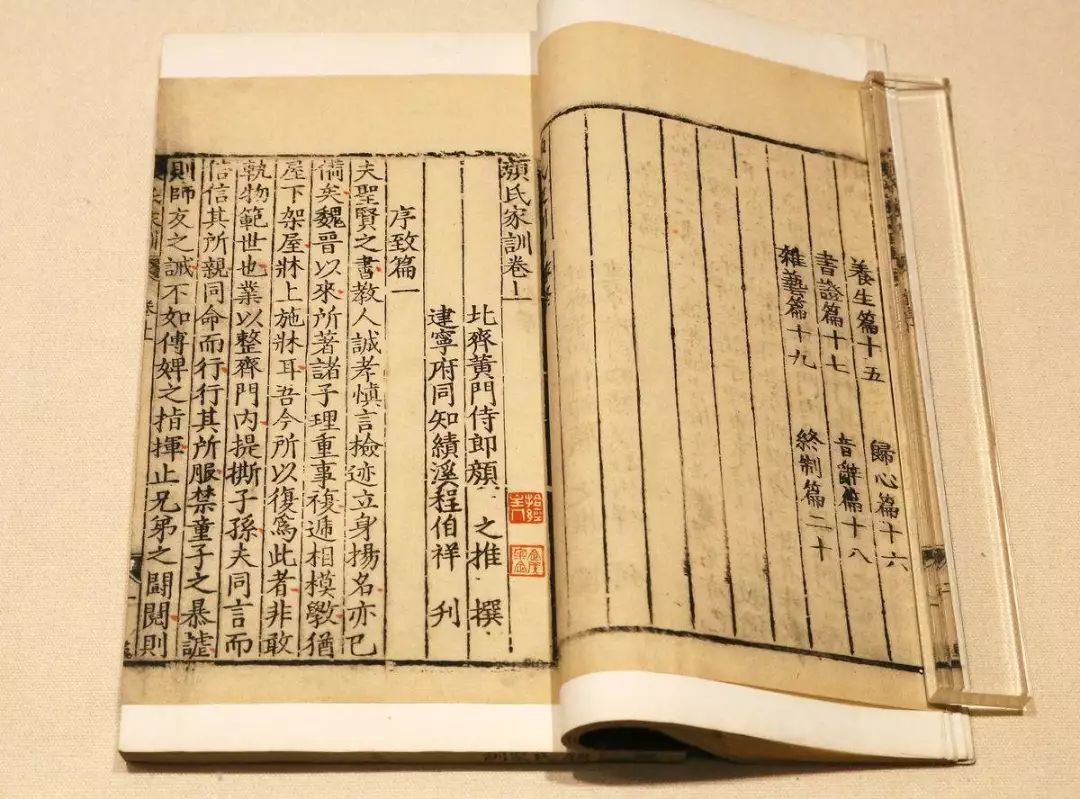 養生篇十五 歸心篇十六
書證篇十七 音辭篇十八
雜藝篇十九 終制篇二十
顏氏家訓卷上
北齊黃門侍郎顏之推撰
建寧府同知績溪程伯祥刊
序致篇一
夫聖賢之書教人誠孝慎言檢迹立身揚名亦已
備矣魏晉以來所著諸子理重事複遞相模斆猶
屋下架屋牀上施牀耳吾今所以復爲此者非敢
軌物範世也業以整齊門內提撕子孫夫同言而
信信其所親同命而行行其所服禁童子之暴謔
則師友之誡不如傅婢之指揮止兄弟之鬪鬩則